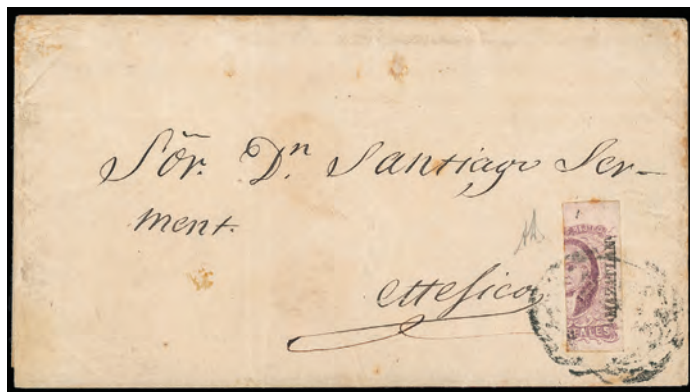 Sōr. Dⁿ Santiago Ser-
ment.
Mejico
MAZATLAN
REALES